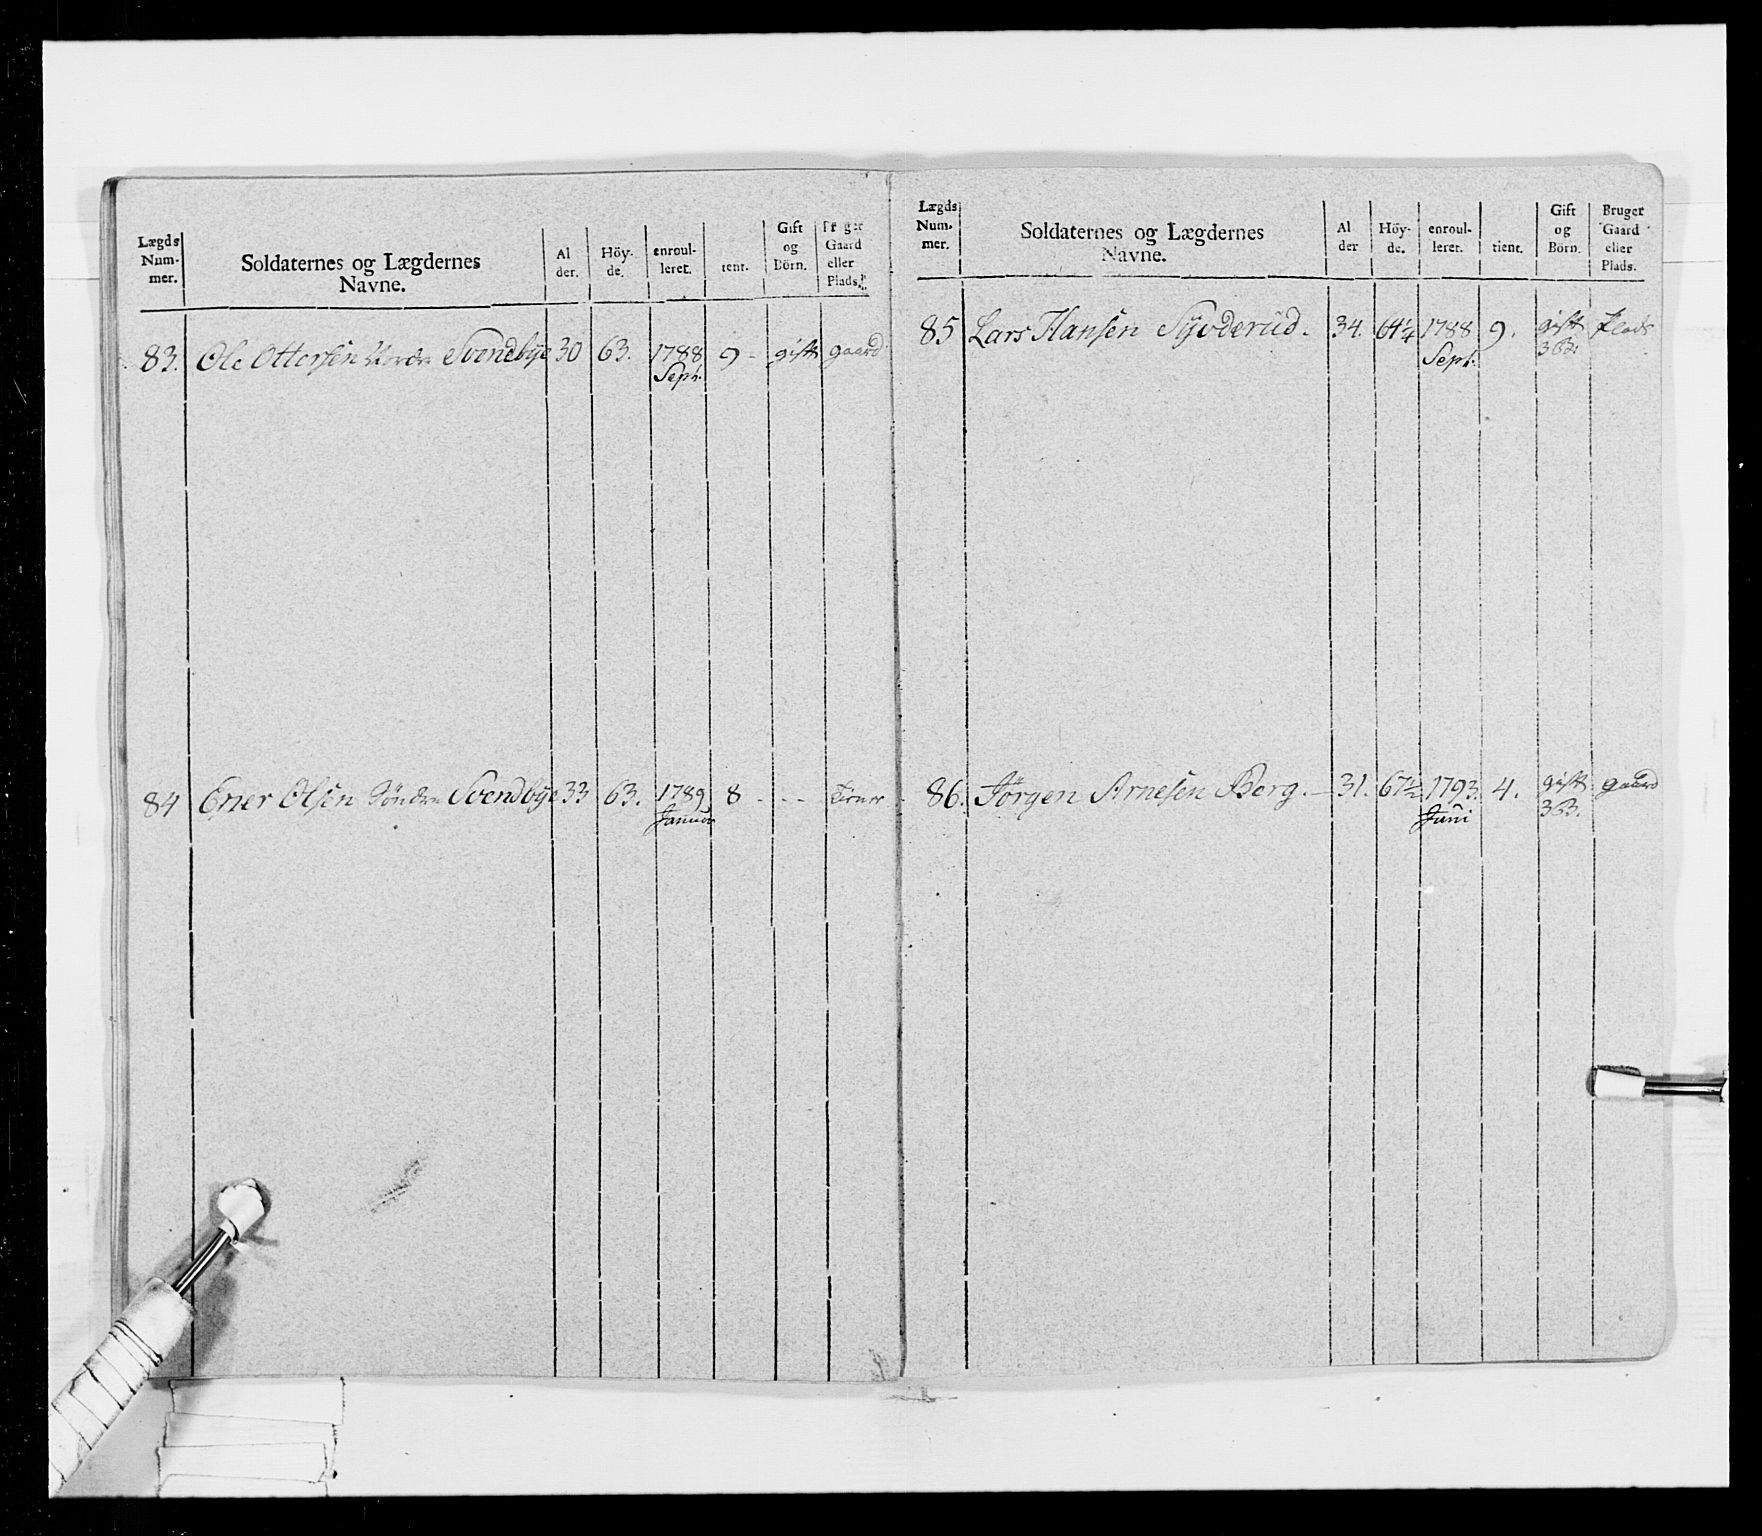 Lægds Num- mer.
Soldaternes og Lægdernes Navne.
Al der.
Höy- de.
enroul- leret.
tient.
Gift og Börn.
Bruger Gaard eller Plads.
83. Ole Ottersen Nordre Svendbye 30 63. 1788 9 - gift gaard
Sept.
84 Ener Olsen Söndre Svendbye 33 63. 1789 8 - - -
Januar
Lægds Num- mer.
Soldaternes og Lægdernes Navne.
Al der
Höy- de.
enroul- leret.
tient.
Gift og Börn.
Bruger Gaard eller Plads.
85 Lars Hansen Syvderud. 34. 64¼ 1788 9. gift Plads
Sept. 3 B.
86. Jörgen Arnesen Berg. 31. 67½ 1793. 4. gift gaard
Juni 3 B.